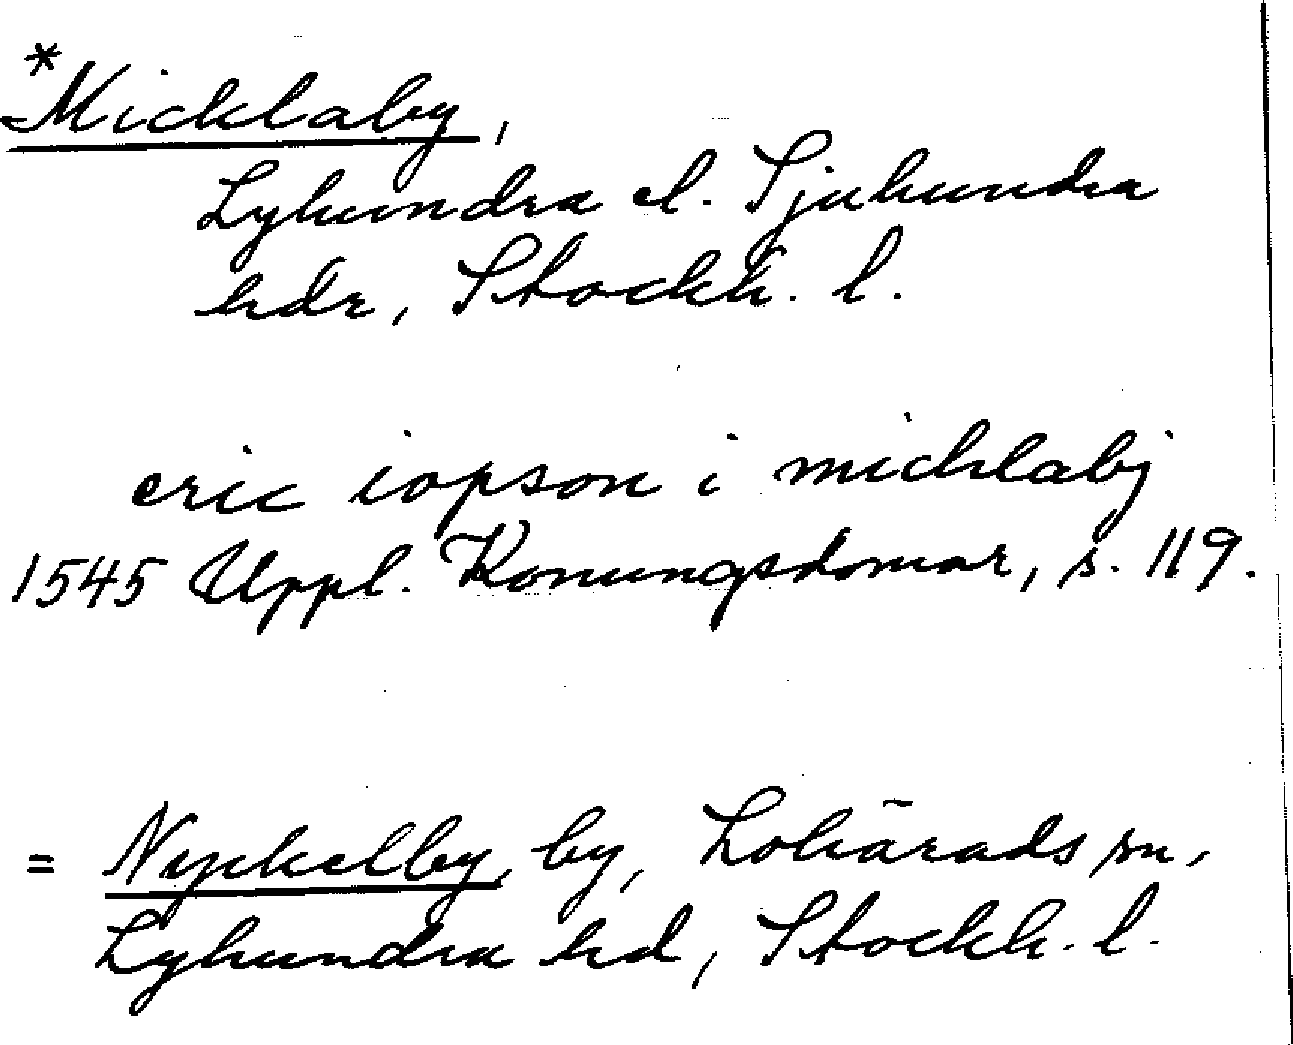 *Micklaby,
Lyhundra el. Sjuhundra
hdr, Stockh. l.
eric iopson i micklabij
1545 Uppl. Konungsdomar, s. 119.
= Nyckelby, by, Lohärads sn,
Lyhundra hd, Stockh. l.